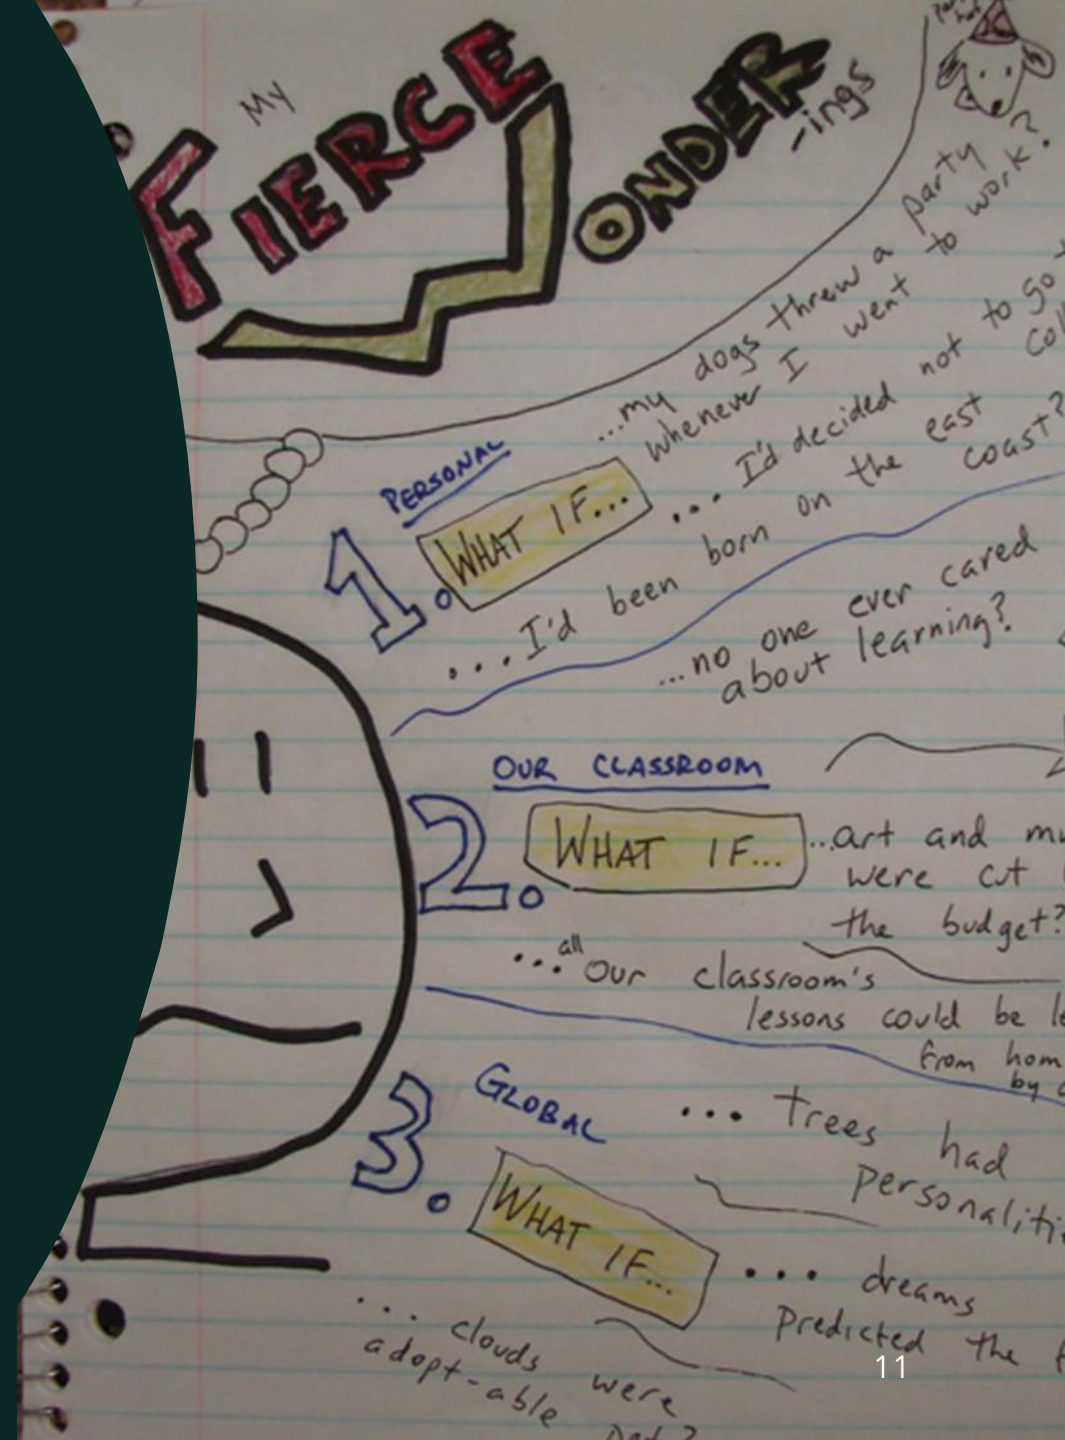 My
FIERCE
WONDER
-ings
...my dogs threw a party
whenever I went to work?
... I'd decided not to go
... I'd been born on the east coast?
PERSONAL
1. WHAT IF...
...no one ever cared
about learning?
OUR CLASSROOM
2. WHAT IF...
...art and
were cut
the budget?
...all our classroom's
lessons could be
from
by
3. GLOBAL
WHAT IF...
... trees had
... dreams
predicted the
... clouds were
adopt-able
11